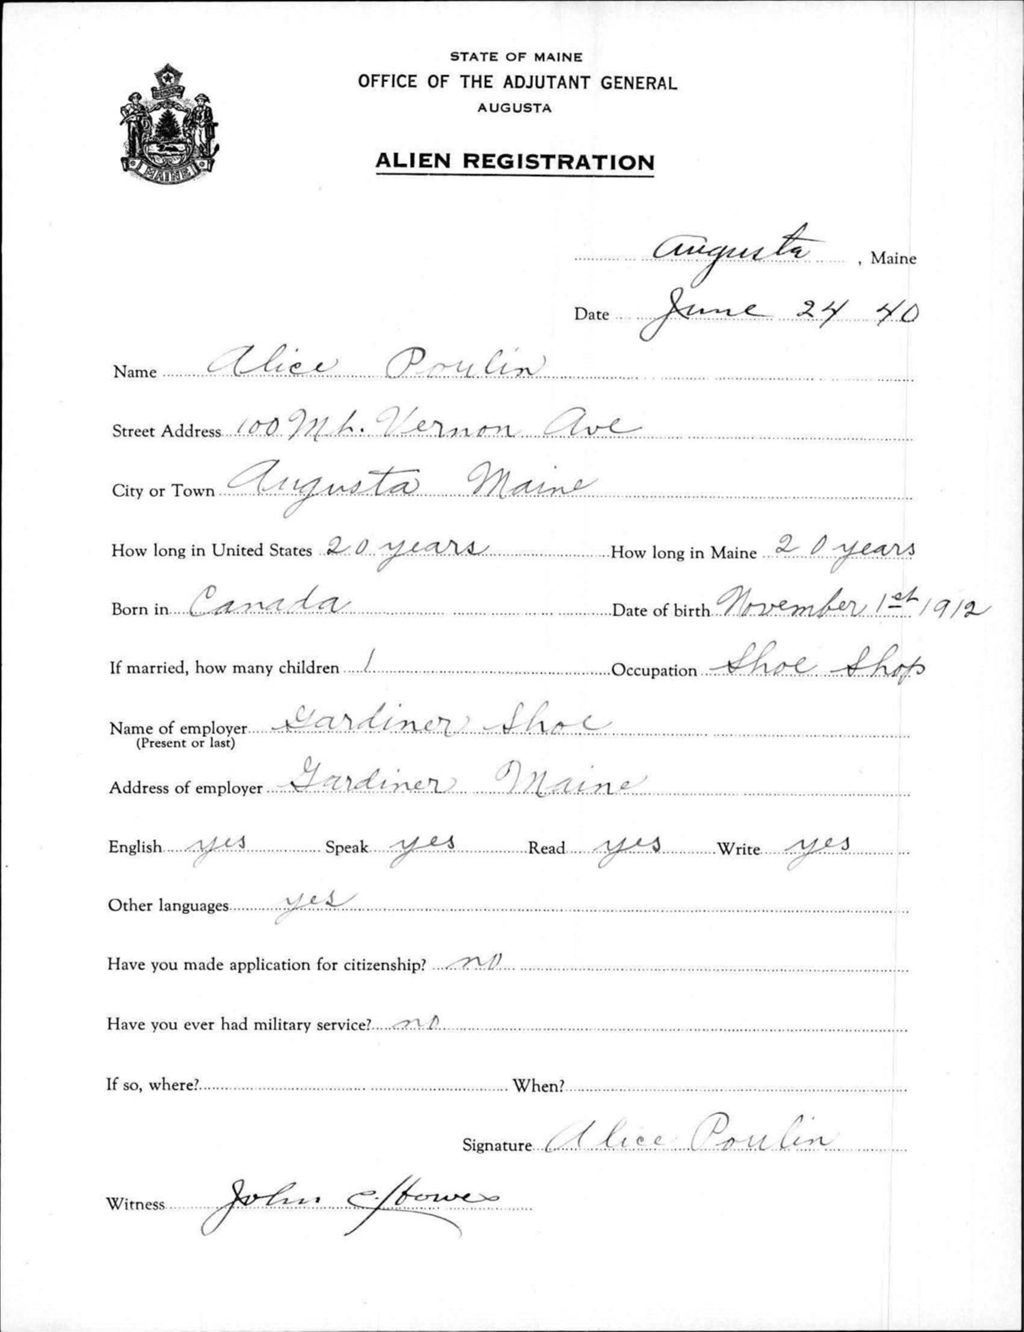 STATE OF MAINE
OFFICE OF THE ADJUTANT GENERAL
AUGUSTA
ALIEN REGISTRATION
MAINE
Augusta, Maine
Date June 24 40
Name Alice Poulin
Street Address 100 Mt. Vernon Ave
City or Town Augusta Maine
How long in United States 20 years How long in Maine 20 years
Born in Canada Date of birth November 1st 1912
If married, how many children 1 Occupation Shoe Shop
Name of employer Gardiner Shoe
(Present or last)
Address of employer Gardiner Maine
English yes Speak yes Read yes Write yes
Other languages yes
Have you made application for citizenship? no
Have you ever had military service? no
If so, where? When?
Signature Alice Poulin
Witness John C. Howes